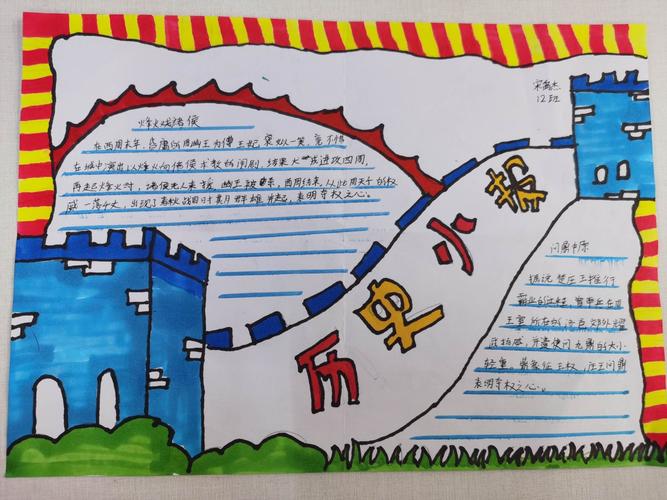 烽火戏诸侯
在西周末年,昏庸的周幽王为博王妃褒姒一笑,竟不惜
在城中演出以烽火向诸侯求救的闹剧,结果犬戎进攻四周,
再起烽火时,诸侯无人来援,幽王被杀,西周结束,从此周天子的权
威一落千丈,出现了春秋战国时期群雄并起,表明夺权之心。
历史小报
宋禹杰
12班
问鼎中原
据说楚庄王推行
霸业的过程,曾率兵在周
王室所在的洛邑郊外耀
武扬威,并遣使问九鼎的大小
轻重。鼎象征王权,庄王问鼎
表明夺权之心。